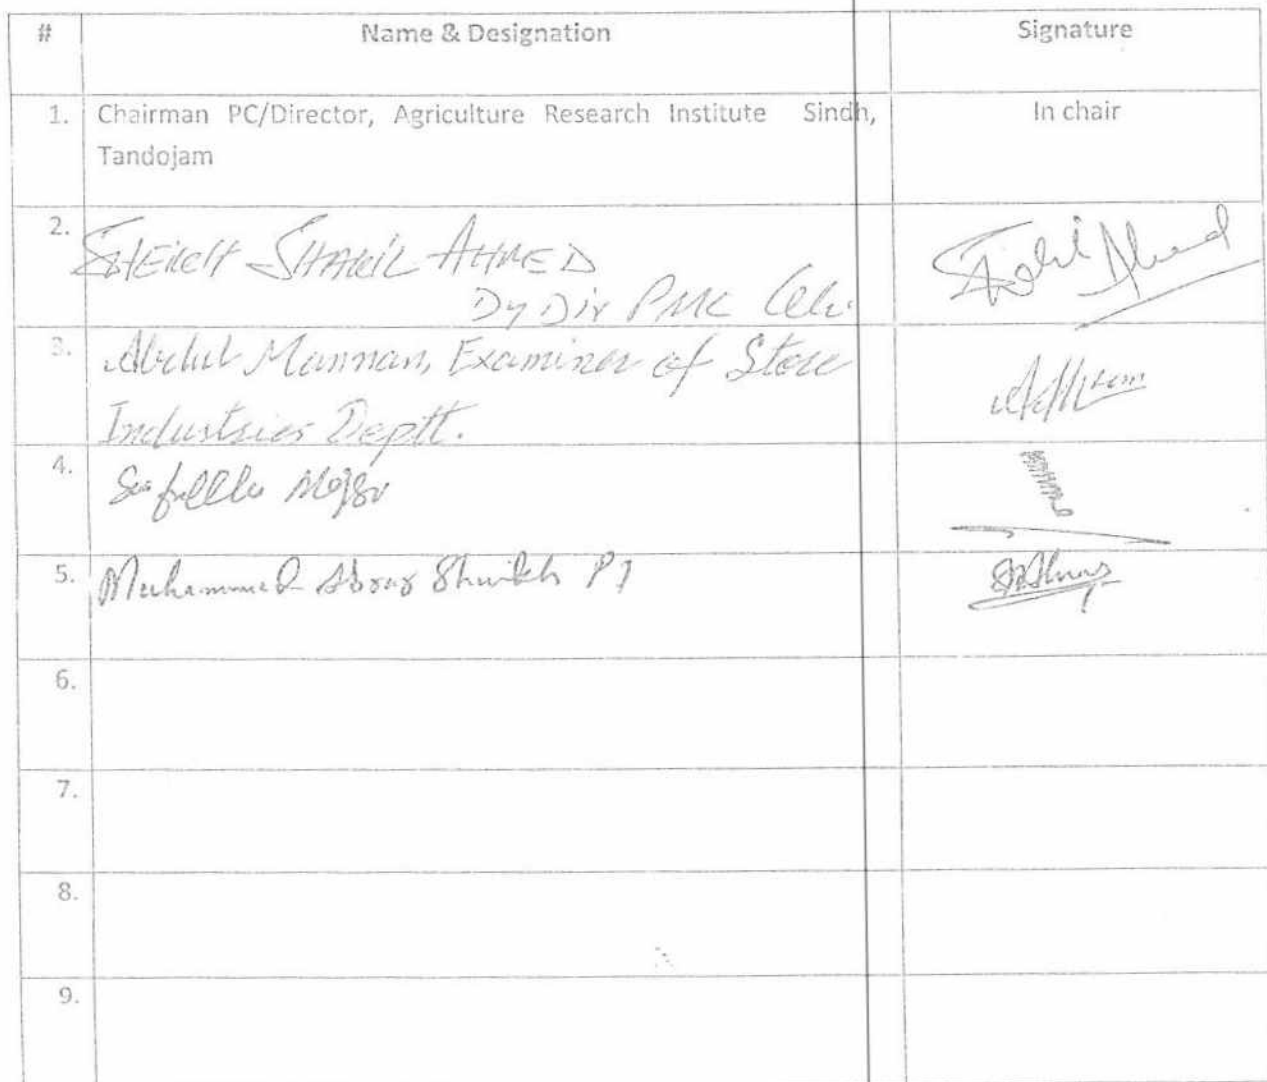 # Name & Designation Signature
1. Chairman PC/Director, Agriculture Research Institute Sindh, In chair
Tandojam
2. SHEIKH SHAKIL AHMED
Dy Dir PMC Cell.
3. Abdul Mannan, Examiner of Store
Industries Deptt.
4.
5. Muhammad Shaikh
6.
7.
8.
9.